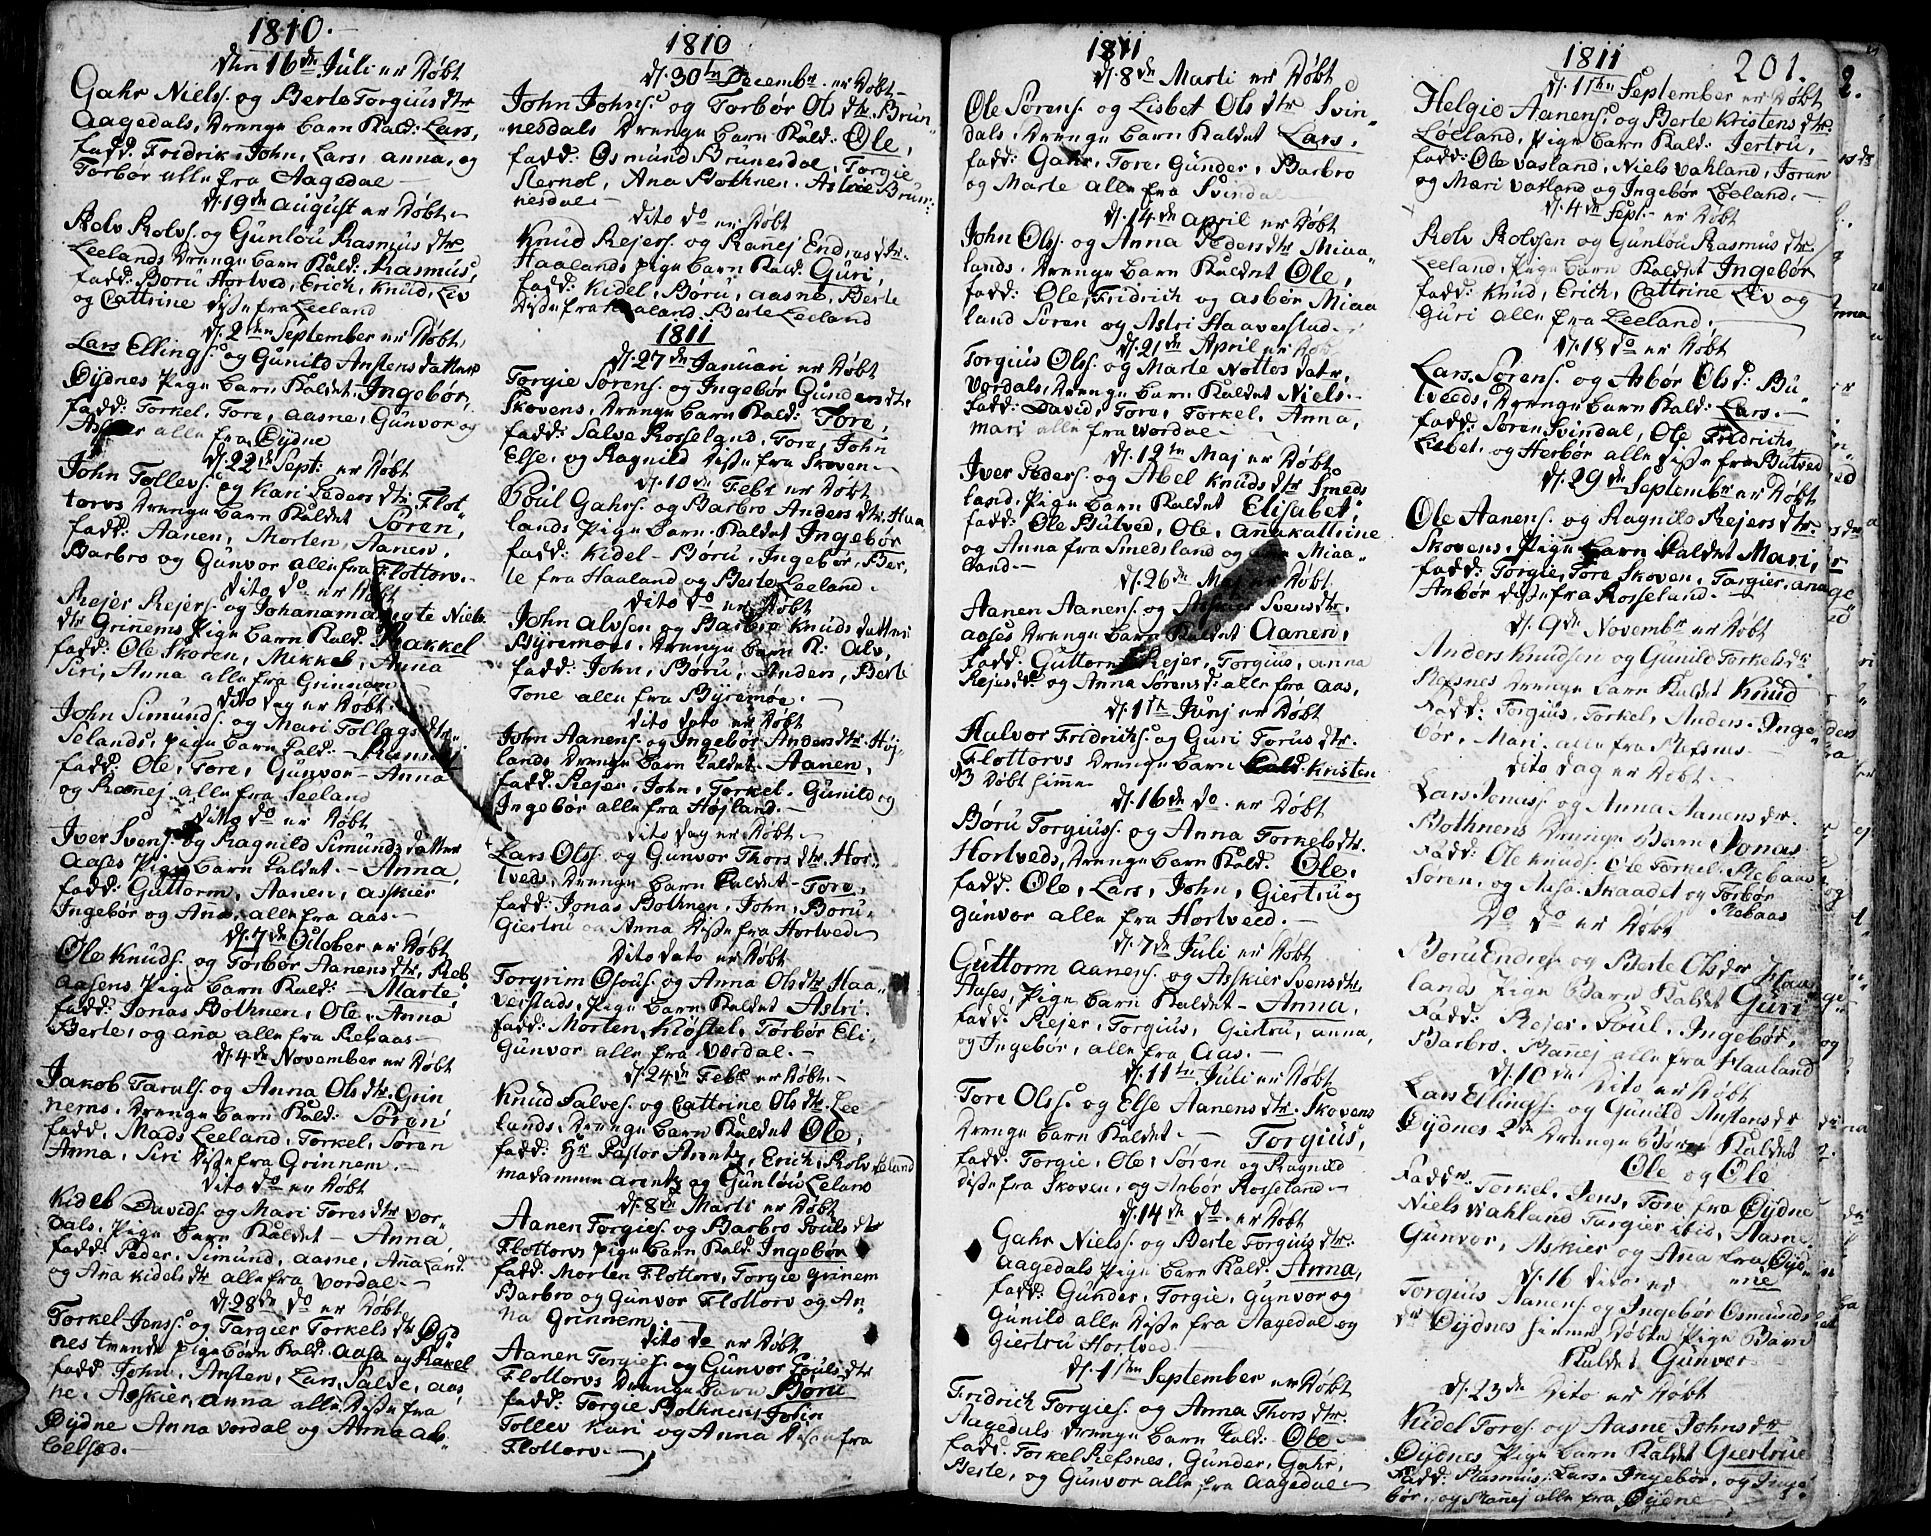 1810.
den 16de Juli er Døbt
Gahr Niels. og Berte Torgius dtr
Aagedals, Drenge barn Kald: Lars,
fadd: Fridrik, John, Lars, Anna, og
Torbør alle fra Aagedal
d. 19de August er Døbt
Rolv Rolvs. og Gunlou Rasmus dtr
Leelands Drenge barn Kald: Rasmus,
fadd: Boru Hortved, Erich, Knud, Liv
og Cattrine disse fra Leeland
d. 2den September er Døbt
Lars Ellings. og Gunild Anstens datter
Øydnes Pige barn Kaldet, Ingebør,
fadd: Torkel, Tore, Aasne, Gunvor og
alle fra Øydne
d. 22de Sept: er Døbt
John Tollevs. og Kari Peders dtr. Flot-
torvs Drenge barn Kaldet Søren,
fadd: Aanen, Morten, Aanen,
Barbro og Gunvor alle fra Flottorv.
Dito do er Døbt
Rejer Rejers. og Johana Niels
dtr Grinnems Pige barn Kald: Rakkel
fadd: Ole Skoren, Mikkel, Anna
Siri, Anna alle fra Grinnem
Dito dag er Døbt
John Simunds. og Mari Tollags dtr
Selands, pige barn Kald:
fadd: Ole, Tore, Gunvor Anna
og Ranej alle fra Seeland
Ditto do er Døbt
Iver Svens. og Ragnild Simunds datter
Aases Pige barn Kaldet. Anna,
fadd: Guttorm, Aanen, Askier
Ingebør og Ana, alle fra Aas.
d. 7de October er Døbt
Ole Knuds. og Torbør Aanens dtr, Reb
aasens Pige barn Kald: Marte,
fadd: Jonas Bothnen, Ole, Anna
Berte, og Ana alle fra Rebaas
d. 4de November er Døbt
Jakob Taralds. og Anna Ols dtr. Grin
nems. Drenge barn Kald: Søren
fadd. Mads Leeland, Torkel, Søren
Anna, Siri disse fra Grinnem.
Dito do er Døbt
Kideb Davids. og Mari Tores dtr Vor-
dals, Pige barn Kaldet Anna
fadd: Peder, Simund, Aasne, Ana
og Ana Kidels dtr alle fra Vordal
d. 28de do er Døbt
Torkel Jens. og Targier Torkels dtr Øyd
nes tvende pige børn Kald: Aasa og Rakel
fadd. John, Ansten, Lars, Salve, Aas
ne, Askier, Anna alle disse fra
Øydne Anna Vordal og Anna

1810
d. 30te Decembr. er Døbt
John Johns. og Torbør Ols dtr Brun-
nesdals Drenge barn Kald: Ole,
fadd: Osmund Brunesdal, Torgie
Sternol, Ana Bothnen, Astrie Brun-
nesdal
Dito do er Døbt
Knud Rejers. og Ranej Endres dtr.
Haalands pige barn Kald. Guri,
fadd: Kidel, Børu, Aasne, Berte
disse fra Haaland, Berte Leeland
1811
d. 27de Januari er Døbt
Torgie Sørens. og Ingebør Gunders dtr.
Skovens, Drenge barn Kald: Tore,
fadd: Salve Rosseland, Tore, John
Else, og Ragnild disse fra Skoven
d. 10de Febr er Døbt
Poul Gahrs. og Barbro Anders dtr. Haa
lands Pige barn Kaldet Ingebør
fadd: Kidel Børu, Ingebør, Ber,
te fra Haaland og Berte Leeland.
Dito do er Døbt
John Alvsen og Barbro Knuds datter
Byremoes. Drenge barn K: Alv,
fadd: John, Børu, Anders, Berte
Tone alle fra Byremoe.
Dito dato er Døbt
John Aanens. og Ingebør Anders dtr. Høj-
lands Drenge barn Kaldet Aanen,
fadd: Rejer, John, Torkel. Gunild og
Ingebør alle fra Højland.
Dito dag er Døbt
Lars Ols. og Gunvor Thors dtr. Hor-
tveds. Drenge barn Kaldet Tore,
fadd: Jonas Bothnen, John, Børu,
Giertru og Anna disse fra Hortved
Dito dato er Døbt
Torgrim Osous. og Anna Ols dtr. Haa-
verstads, Pige barn Kaldet Astri.
fadd: Morten, Kiøstel, Torbør Eli,
Gunvor alle fra Vordal.
d. 24de Febr er Døbt.
Knud Salves. og Cattrine Ols dtr. Lee
lands. Drenge barn Kaldet Ole,
fadd: Hr Pastor Arentz, Erich, Rolv Leeland
madammen Arentz og Gunlou Leland
d. 8de Marti er Døbt
Aanen Torgies. og Barbro Pouls dtr
Flottorvs pige barn Kald: Ingebør
fadd: Morten Flottorv, Torgie Grinem
Barbro og Gunvor Flottorv og An-
na Grinnem
Dito do er Døbt
Aanen Torgies. og Gunvor Pouls dtr
Flottorvs Drenge barn Børu
fadd: Torgie Bothnen, John
Tollev Kari og Anna Disse fra
Flottorv

1811
d. 8de Marti er Døbt
Ole Sørens. og Lisbet Ols dtr Svin-
dals. Drenge barn Kaldet Lars.
fadd: Gahr, Tore, Gunder, Barbro
og Marte alle fra Svindal
d. 14de April er Døbt
John Ols. og Anna Peders dtr Miaa-
lands. Drenge barn Kaldet Ole,
fadd: Ole, Fridrich og Asbør Miaa
land Søren og Astri Haaverstad
d. 21de April er Døbt
Torgius Ols. og Marte Nottos datr,
Vordals, Drenge barn Kaldet Niels
fadd: David, Tore, Torkel, Anna,
Mari alle fra Vordal
d. 12te Maj er Døbt
Iver Peders. og Abel Knuds dtr Smeds
land. Pige barn Kaldet Elisabet
fadd: Ole Butved, Ole, Anakattrine
og Anna fra Smedsland og Miaa-
land
d. 26de Maj er Døbt
Aanen Aanens. og Askier Svens dtr.
Aases Drenge barn Kaldet Aanen,
fadd: Guttorm, Rejer, Torgius, Anna
Rejers dtr og Anna Sørens d: alle fra Aas,
d. 1te Junj er Døbt
Halvor Fridrichs. og Guri Torus dtr.
Flottorvs Drenge barn Kald. Kristen
Døbt hiemme
d. 16de do. er Døbt
Børu Torgius. og Anna Torkels dtr.
Hortveds, Drenge barn Kald. Ole,
fadd: Ole, Lars, John, Giertru og
Gunvor alle fra Hortveed.
d. 7de Juli er Døbt
Guttorm Aanens. og Askier Svens dtr.
Aases, Pige barn Kaldet Anna,
fadd: Rejer, Torgius, Giertru, Anna,
og Ingebør, alle fra Aas.
d. 11te Juli er Døbt
Tore Ols. og Else Aanens dtr. Skovens
Drenge barn Kaldet. Torgius,
fadd: Torgie, Ole, Søren og Ragnild
disse fra Skoven, og Anbør Rosseland.
d. 14de do. er Døbt
Gahr Niels. og Berte Torgius dtr.
Aagedals Pige barn Kald: Anna,
fadd: Gunder, Torgie, Gunvor og
Gunild alle disse fra Aagedal og
Giertru Hortved
d. 1ste September er Døbt
Fridrich Torgies. og Anna Thors dtr.
Aagedals Drenge barn Kald: Ole
fadd: Torkel Refsnes, Gunder, Gahr,
Berte, og Gunvor alle fra Aagedal

1811 201.
d. 1ste September er Døbt
Helgio Aanens. og Berte Kristens dtr.
Løeland, Pige barn Kald: Jertru,
fadd: Ole Vatland, Niels Vahland, Joran
og Mari Vatland og Ingebør Løeland.
d. 4de Sept. er Døbt
Rolv Rolvsen og Gunlou Rasmus dtr.
Leeland, Pige barn Kaldet Ingebør
fadd: Knud, Erich, Cattrine Liv og
Guri alle fra Leeland.
d. 18 do er Døbt
Lars Sørens. og Asbør Ols d: Bu-
tveds, Drenge barn Kald: Lars.
fadd: Søren Svindal, Ole Fridrichs
Lisbet. og Herbør alle disse fra Butved
d. 29de September er Døbt
Ole Aanens. og Ragnild Rejers dtr.
Skovens, Pige barn Kaldet Mari,
fadd: Torgie, Tore Skoven, Targier, Ana
Anbør disse fra Rosseland.
d. 9de Novembr er Døbt
Anders Knudsen og Gunild Torkels dtr
Refsnes Drenge barn Kaldet Knud
Fadd: Torgius, Torkel, Anders. Inge
bør, Mari. alle fra Refsnes
Dito dag er Døbt
Lars Jonas. og Anna Aanens dr.
Bothnens Drenge Barn Jonas
Fadd: Ole Knuds. Ole Torkel. Rebaas
Søren. og Aasa. Skaadet og Torbør
Rebaas
Do do er Døbt
Børu Endres. og Berte Ols dr Haa
lands Pige Barn Kaldet Guri
Fadd: Rejer. Poul. Ingebør,
Barbro, Ranej alle fra Haaland
d. 10de Dito er Døbt
Lars Ellings. og Gunild Anstens dr
Øydnes 2de Drenge Børn Kaldet
Ole og Ole
Faddr. Torkel, Jens, Tore fra Øydne
Niels Vahland Targier ibid, Aasne,
Gunvor, Askier og Ana fra Øyd-
ne
d. 16 dito er
Torgius Aanens. og Ingebør Osmunds
dr Øydnes hieme Døbte Pige Barn
Kaldet Gunvor
d. 23de Dito er Døbt
Kidel Tores. og Aasne Johns dtr
Øydnes Pige barn Kaldet Giertrue
Fadd: Rasmus, Lars, Ingebør, og Inge
bør, og Ranej alle fra Øydne